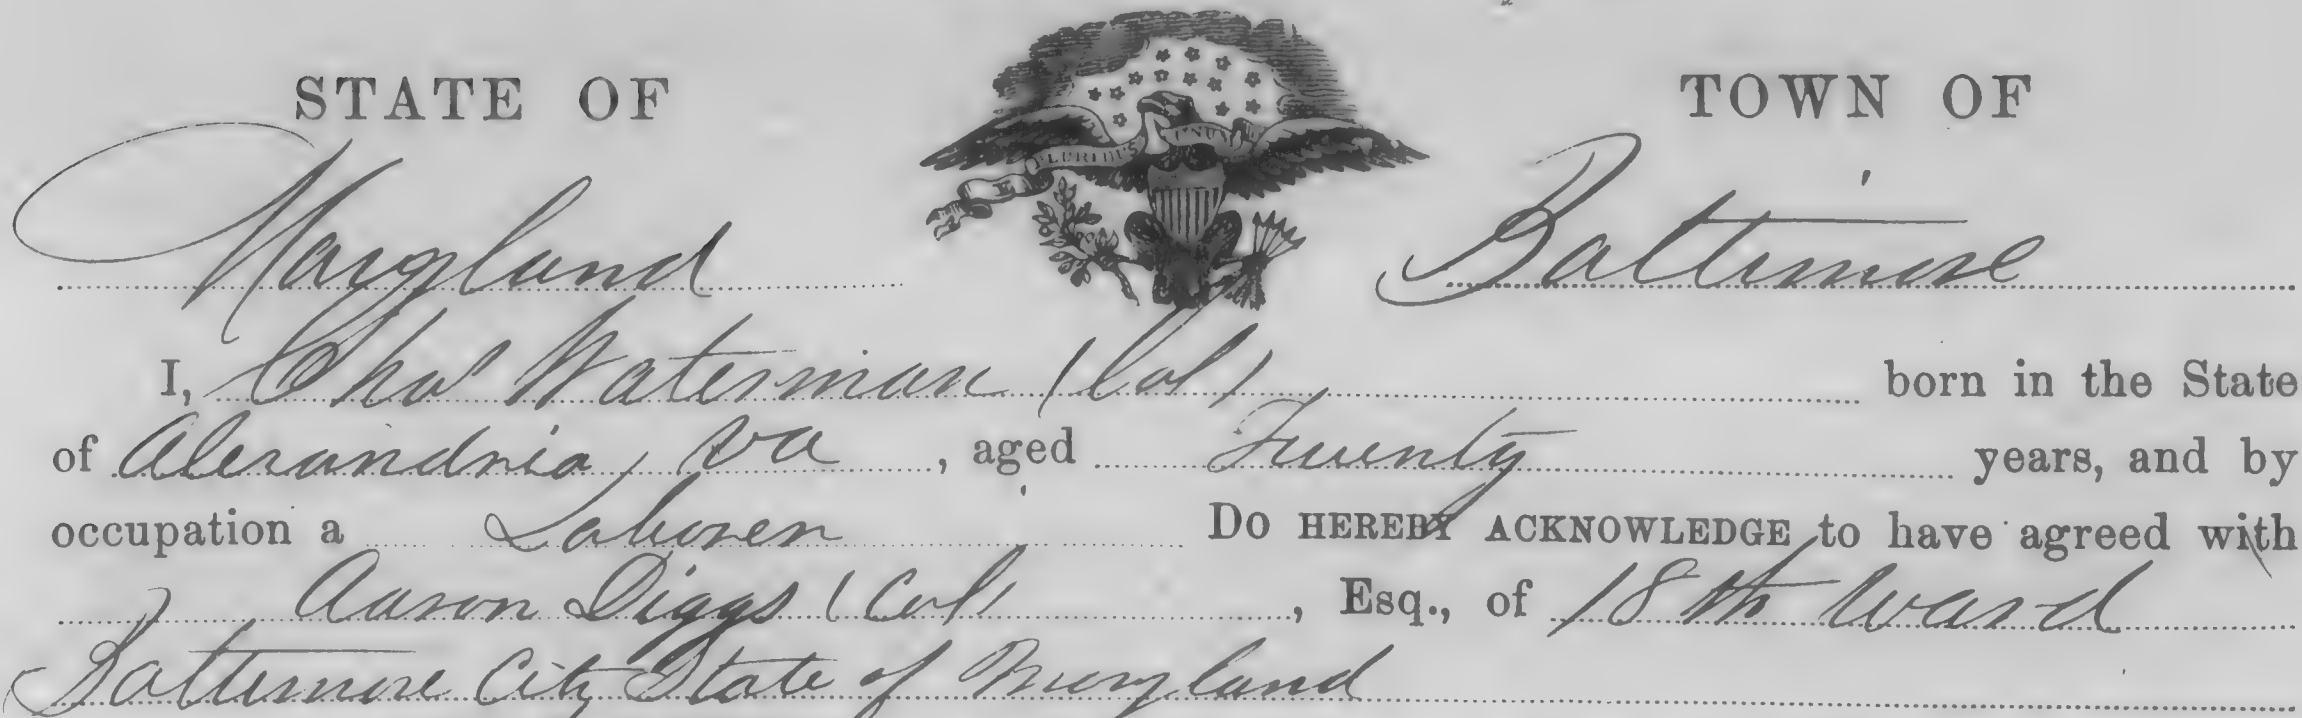 STATE OF
TOWN OF
E PLURIBUS UNUM
Maryland
Baltimore
I, Chas Waterman (Col) born in the State
of Alexandria, Va, aged Twenty years, and by
occupation a Laborer Do HEREBY ACKNOWLEDGE to have agreed with
Aaron Diggs (Col), Esq., of 18th Ward
Baltimore City State of Maryland